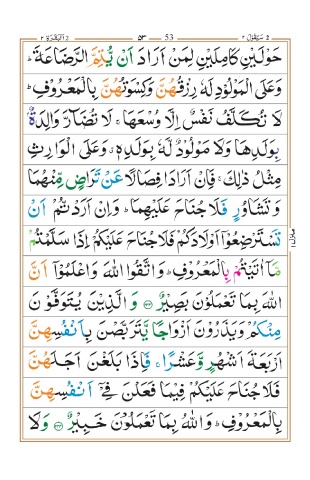 سَيَقُوْلُ ٢ ٥٣ 53 اَلْبَقَرَة ٢
حَوْلَيْنِ كَامِلَيْنِ لِمَنْ اَرَادَ اَنْ يُّتِمَّ الرَّضَاعَةَ ؕ
وَعَلَى الْمَوْلُوْدِ لَهٗ رِزْقُهُنَّ وَكِسْوَتُهُنَّ بِالْمَعْرُوْفِ ؕ
لَا تُكَلَّفُ نَفْسٌ اِلَّا وُسْعَهَا ۚ لَا تُضَآرَّ وَالِدَةٌۢ
بِوَلَدِهَا وَلَا مَوْلُوْدٌ لَّهٗ بِوَلَدِهٖ ۗ وَعَلَى الْوَارِثِ
مِثْلُ ذٰلِكَ ۚ فَاِنْ اَرَادَا فِصَالًا عَنْ تَرَاضٍ مِّنْهُمَا
وَتَشَاوُرٍ فَلَا جُنَاحَ عَلَيْهِمَا ؕ وَاِنْ اَرَدْتُّمْ اَنْ
تَسْتَرْضِعُوْٓا اَوْلَادَكُمْ فَلَا جُنَاحَ عَلَيْكُمْ اِذَا سَلَّمْتُمْ
مَّآ اٰتَيْتُمْ بِالْمَعْرُوْفِ ؕ وَاتَّقُوا اللّٰهَ وَاعْلَمُوْٓا اَنَّ
اللّٰهَ بِمَا تَعْمَلُوْنَ بَصِيْرٌ ۝ وَالَّذِيْنَ يُتَوَفَّوْنَ
مِنْكُمْ وَيَذَرُوْنَ اَزْوَاجًا يَّتَرَبَّصْنَ بِاَنْفُسِهِنَّ
اَرْبَعَةَ اَشْهُرٍ وَّعَشْرًا ۚ فَاِذَا بَلَغْنَ اَجَلَهُنَّ
فَلَا جُنَاحَ عَلَيْكُمْ فِيْمَا فَعَلْنَ فِيْٓ اَنْفُسِهِنَّ
بِالْمَعْرُوْفِ ؕ وَاللّٰهُ بِمَا تَعْمَلُوْنَ خَبِيْرٌ ۝ وَلَا